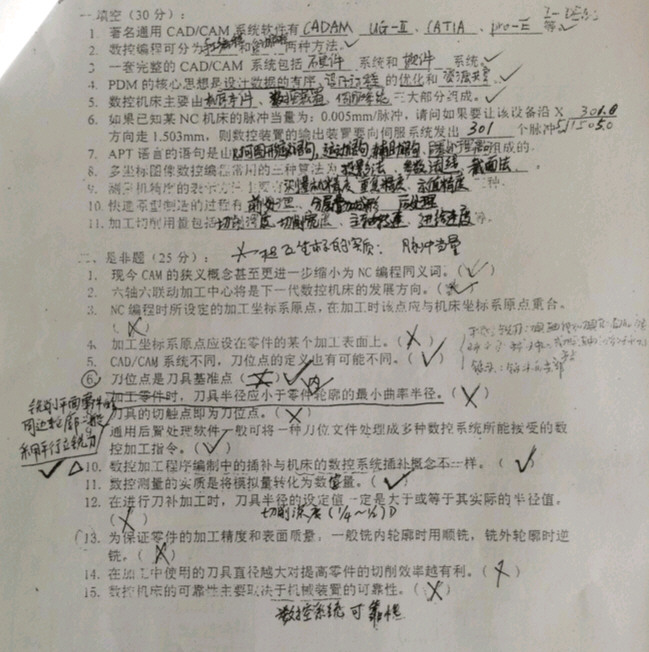 一 填空（30 分）：
1. 著名通用 CAD/CAM 系统软件有 CADAM、UG-II、CATIA、pro-E 等。
2. 数控编程可分为 和 两种方法。
3 一套完整的 CAD/CAM 系统包括 硬件 系统和 软件 系统。
4. PDM 的核心思想是设计数据的有序、设计过程的优化和资源共享。
5. 数控机床主要由 数控装置、 三大部分组成。
6. 如果已知某 NC 机床的脉冲当量为：0.005mm/脉冲，请问如果要让该设备沿 X
方向走 1.503mm，则数控装置的输出装置要向伺服系统发出 301 个脉冲
7. APT 语言的语句是由几何图形定义语句，运动语句，辅助语句，后处理语句组成的。
8. 多坐标图像数控编程常用的三种算法为 投影法、参数流线、截面法。
9. 重复精度、示值精度 三种。
10. 快速原型制造的过程有 前处理、分层叠加成形 后处理
11. 加工切削用量包括 切削深度 切削宽度、主轴转速、进给速度 等。
二、是非题（25 分）： 脉冲当量
1. 现今 CAM 的狭义概念甚至更进一步缩小为 NC 编程同义词。（√）
2. 六轴六联动加工中心将是下一代数控机床的发展方向。（
3. NC 编程时所设定的加工坐标系原点，在加工时该点应与机床坐标系原点重合。
（X）
4. 加工坐标系原点应设在零件的某个加工表面上。（X）
5. CAD/CAM 系统不同，刀位点的定义也有可能不同。（√）
6. 刀位点是刀具基准点（ ）√
加工零件时，刀具半径应小于零件轮廓的最小曲率半径。（X）
刀具的切触点即为刀位点。（X）
通用后置处理软件一般可将一种刀位文件处理成多种数控系统所能接受的数
控加工指令。（√）
√△10. 数控加工程序编制中的插补与机床的数控系统插补概念不一样。（√）
11. 数控测量的实质是将模拟量转化为数值量。（√）
12. 在进行刀补加工时，刀具半径的设定值一定是大于或等于其实际的半径值。
（X） 切削深度(1/4～1/2)D
13. 为保证零件的加工精度和表面质量，一般铣内轮廓时用顺铣，铣外轮廓时逆
铣。（X）
14. 在加工中使用的刀具直径越大对提高零件的切削效率越有利。（X）
15. 数控机床的可靠性主要取决于机械装置的可靠性。（X）
数控系统可靠性